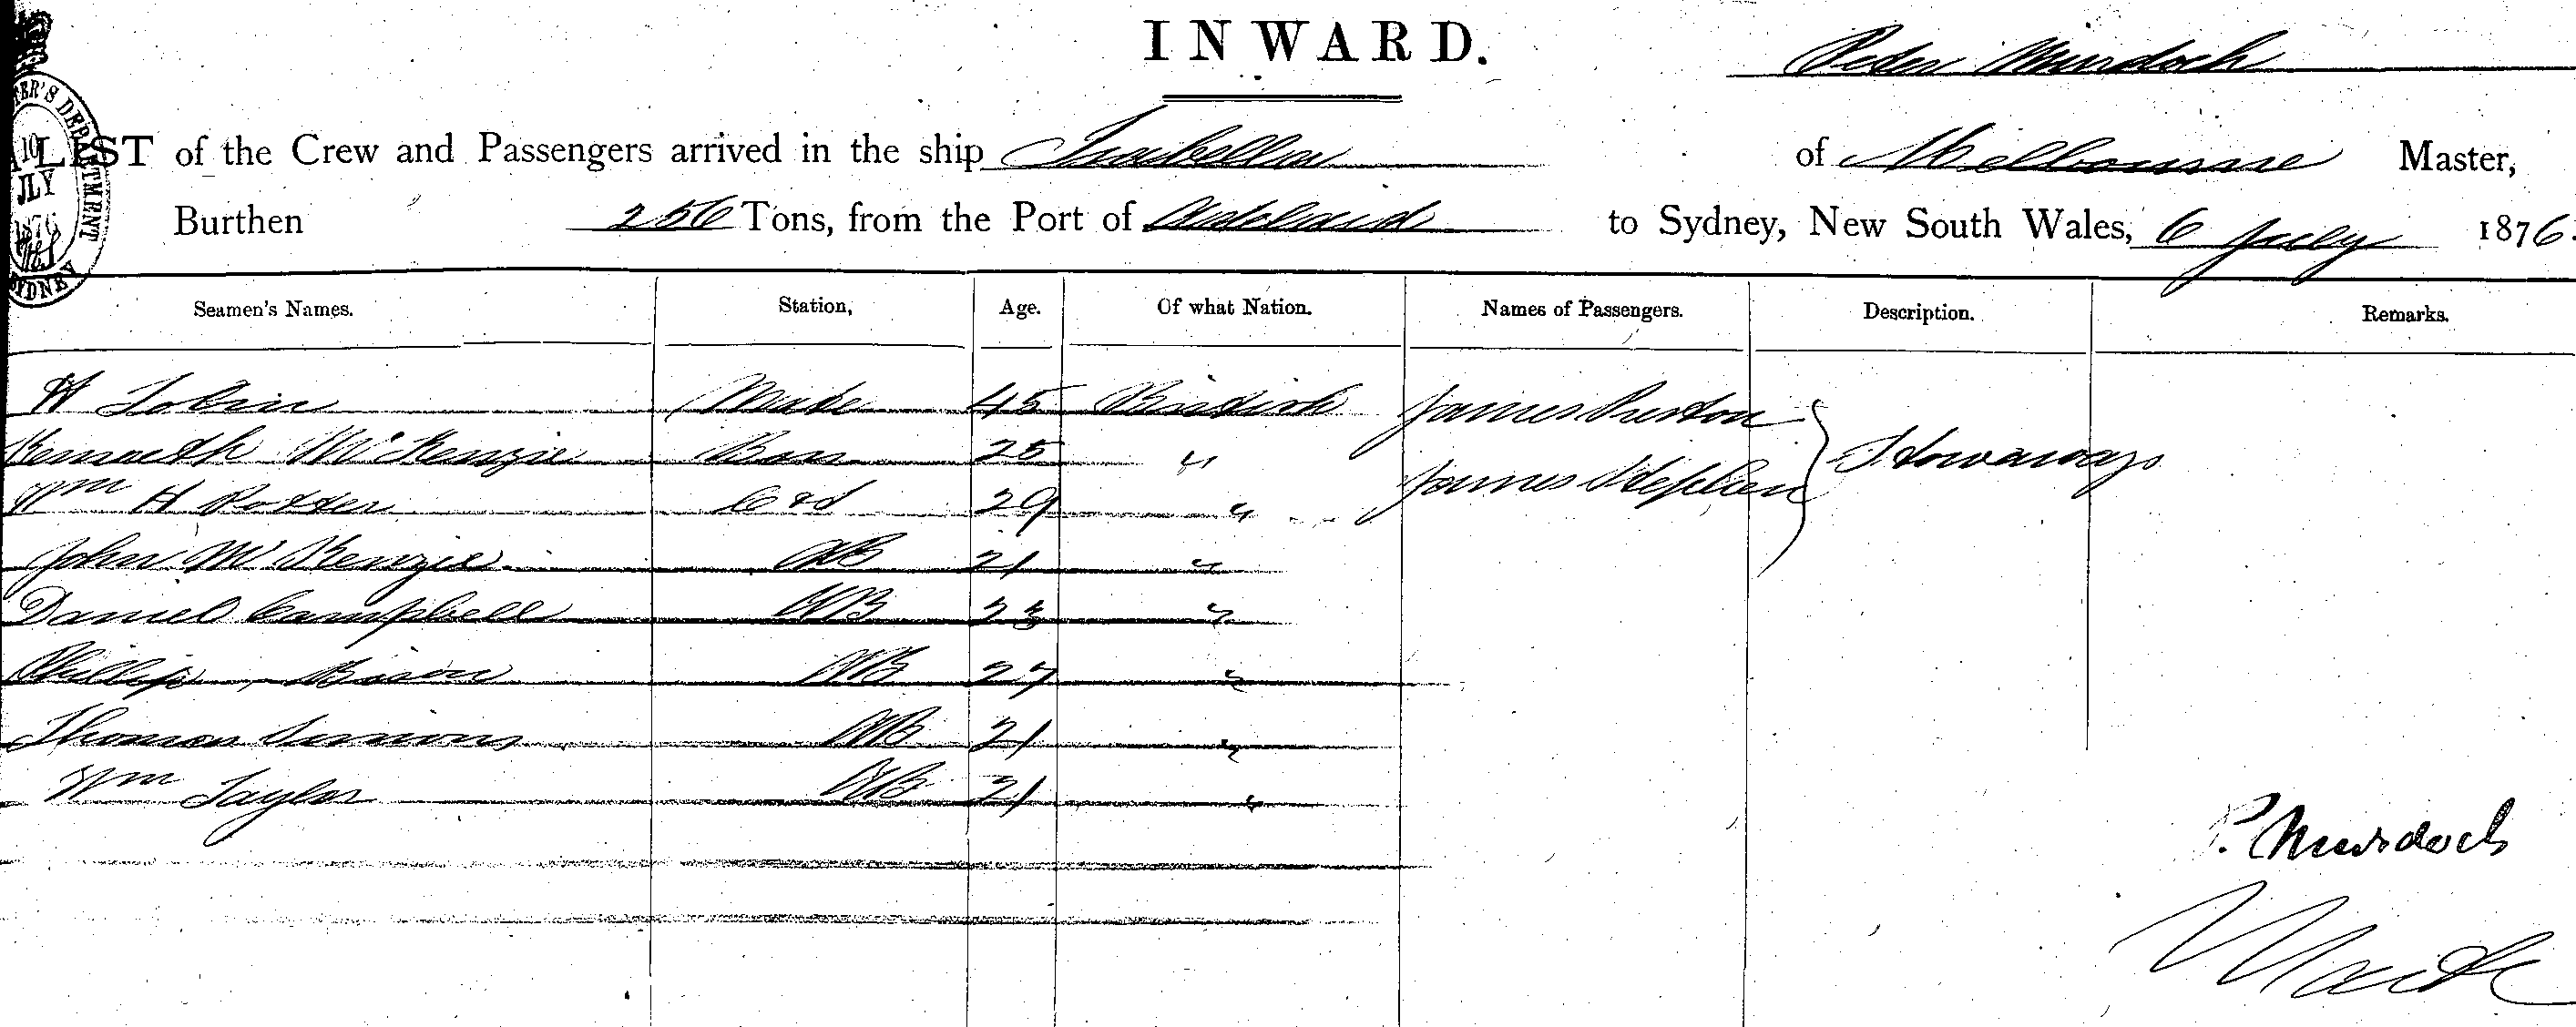 INWARD.
Peter Murdoch
A LIST of the Crew and Passengers arrived in the ship Isabella of Melbourne Master,
Burthen 256 Tons, from the Port of Auckland to Sydney, New South Wales, 6 July 1876.
10
JLY
1876
SYDNEY
Seamen's Names. Station, Age. Of what Nation. Names of Passengers. Description. Remarks.
H Tobin Mate 45 British James Purton
Kenneth McKenzie Bosn 25 " James Stephen Stowaways
Wm H Potter C & S 29 "
John McKenzie AB 21 "
Daniel Campbell AB 23 "
Phillip AB 27 "
Thomas AB 21 "
Wm Taylor AB 21 "
P. Murdoch